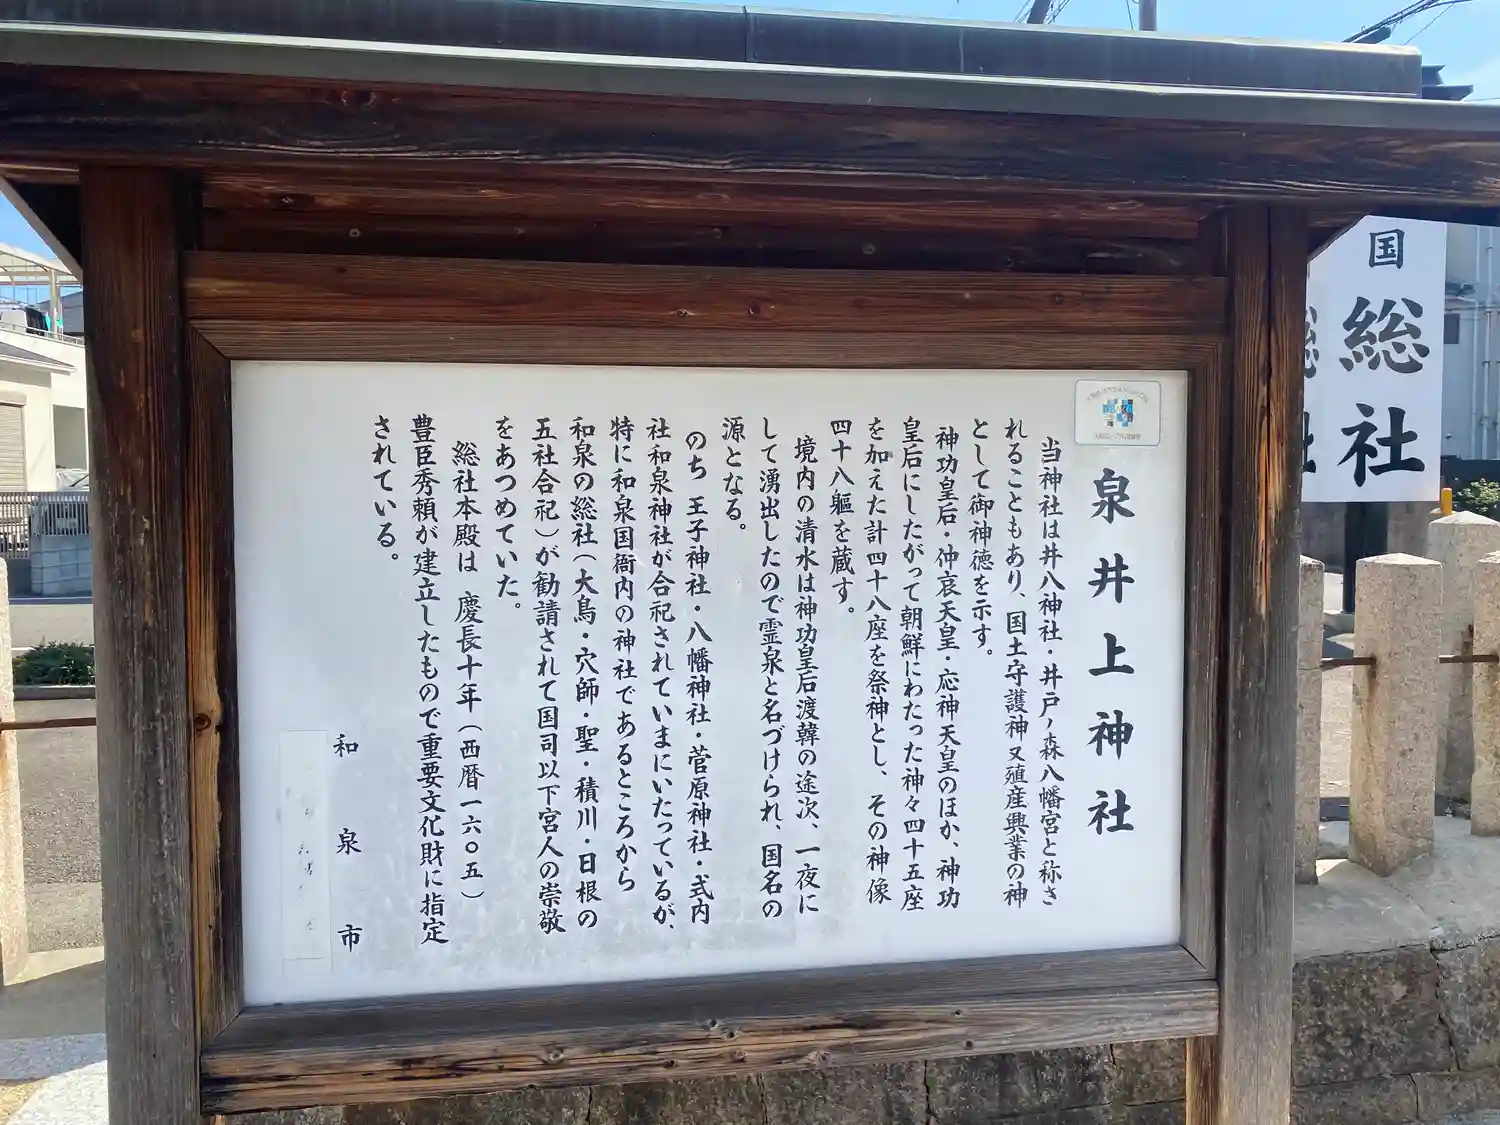 泉井上神社
当神社は井八神社・井戸ノ森八幡宮と称さ
れることもあり、国土守護神又殖産興業の神
として御神徳を示す。
神功皇后・仲哀天皇・応神天皇のほか、神功
皇后にしたがって朝鮮にわたった神々四十五座
を加えた計四十八座を祭神とし、その神像
四十八軀を蔵す。
境内の清水は神功皇后渡韓の途次、一夜に
して湧出したので霊泉と名づけられ、国名の
源となる。
のち 王子神社・八幡神社・菅原神社・式内
社和泉神社が合祀されていまにいたっているが、
特に和泉国衙内の神社であるところから
和泉の総社（大鳥・穴師・聖・積川・日根の
五社合祀）が勧請されて国司以下宮人の崇敬
をあつめていた。
総社本殿は 慶長十年（西暦一六〇五）
豊臣秀頼が建立したもので重要文化財に指定
されている。
和泉市
国総社